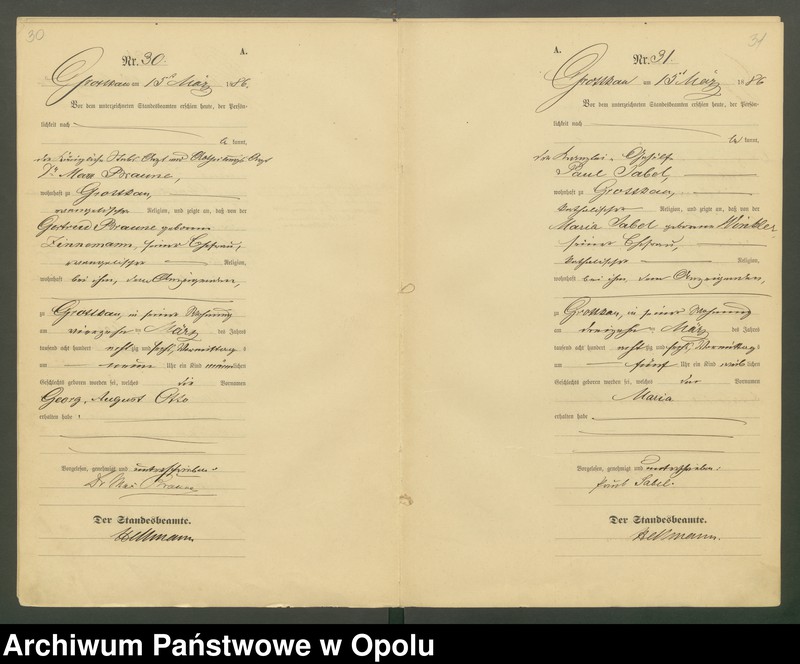 30
A.
Nr. 30.
Grottkau am 15ten März 1886.
Vor dem unterzeichneten Standesbeamten erschien heute, der Persön-
lichkeit nach
be kannt,
der Königliche Stabs-Arzt und
Dr. Max Braune,
wohnhaft zu Grottkau,
evangelischer Religion, und zeigte an, daß von der
Gertrud Braune geborene
Zinnemann, seiner Ehefrau,
evangelischer Religion,
wohnhaft bei ihm, dem Anzeigenden,
zu Grottkau, in seiner Wohnung
am vierzehnten März des Jahres
tausend acht hundert achtzig und sechs, Vormittags
um neun Uhr ein Kind männlichen
Geschlechts geboren worden sei, welches die Vornamen
Georg, August Otto
erhalten habe.
Vorgelesen, genehmigt und unterschrieben.
Dr Max Braune
Der Standesbeamte.
Hellmann
31
A.
Nr. 31.
Grottkau am 15ten März 1886
Vor dem unterzeichneten Standesbeamten erschien heute, der Persön-
lichkeit nach
be kannt,
der Kanzlei-Gehilfe
Paul Sabel,
wohnhaft zu Grottkau,
katholischer Religion, und zeigte an, daß von der
Maria Sabel geborene Winkler,
seiner Ehefrau,
katholischer Religion,
wohnhaft bei ihm dem Anzeigenden,
zu Grottkau, in seiner Wohnung
am dreizehnten März des Jahres
tausend acht hundert achtzig und sechs, Vormittags
um fünf Uhr ein Kind weiblichen
Geschlechts geboren worden sei, welches den Vornamen
Maria
erhalten habe.
Vorgelesen, genehmigt und unterschrieben.
Paul Sabel.
Der Standesbeamte.
Hellmann.
Archiwum Państwowe w Opolu